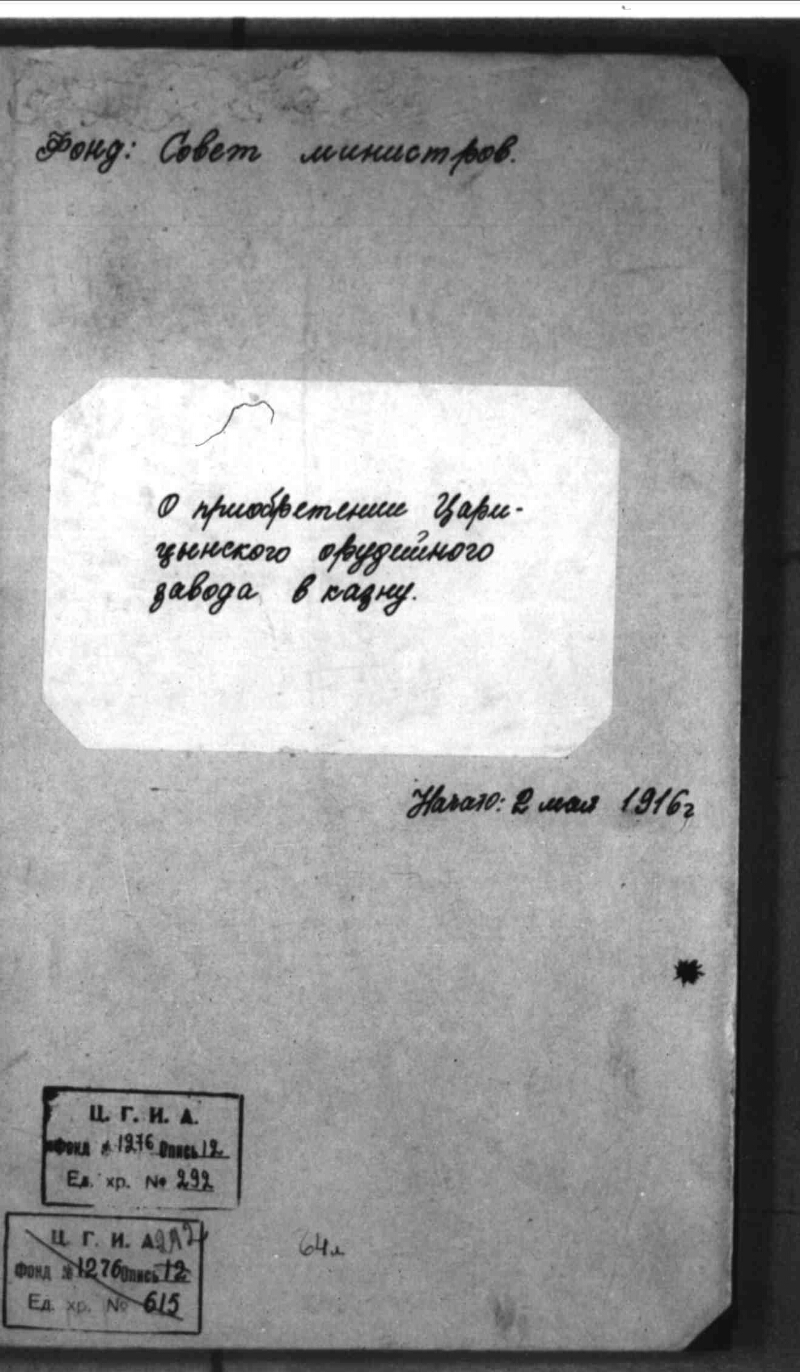 Фонд: Совет министров.
О приобретении Цари-
цынского орудийного
завода в казну.
Начато: 2 мая 1916г
Ц. Г. И. А.
Фонд № 1276 Опись 12
Ед. хр. № 292
Ц. Г. И. А.
Фонд № 1276 Опись 12
Ед. хр. № 615
64л.